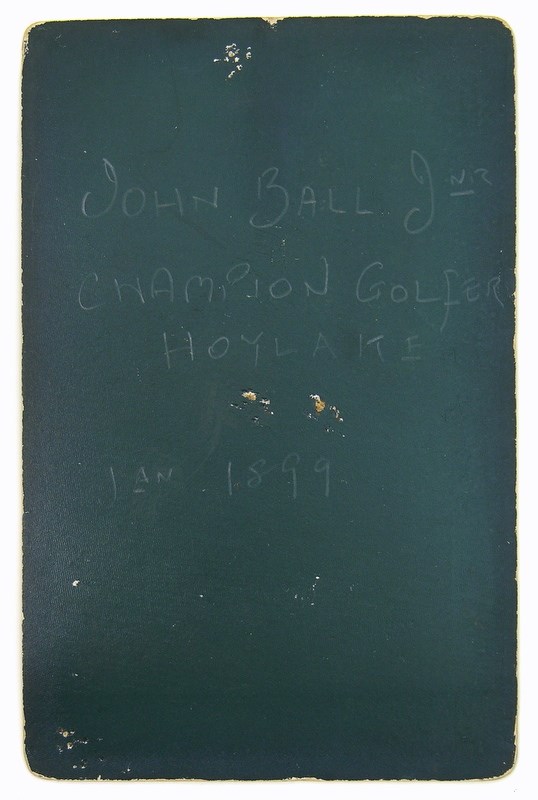 John Ball Jnr
Champion Golfer
Hoylake
Jan 1899